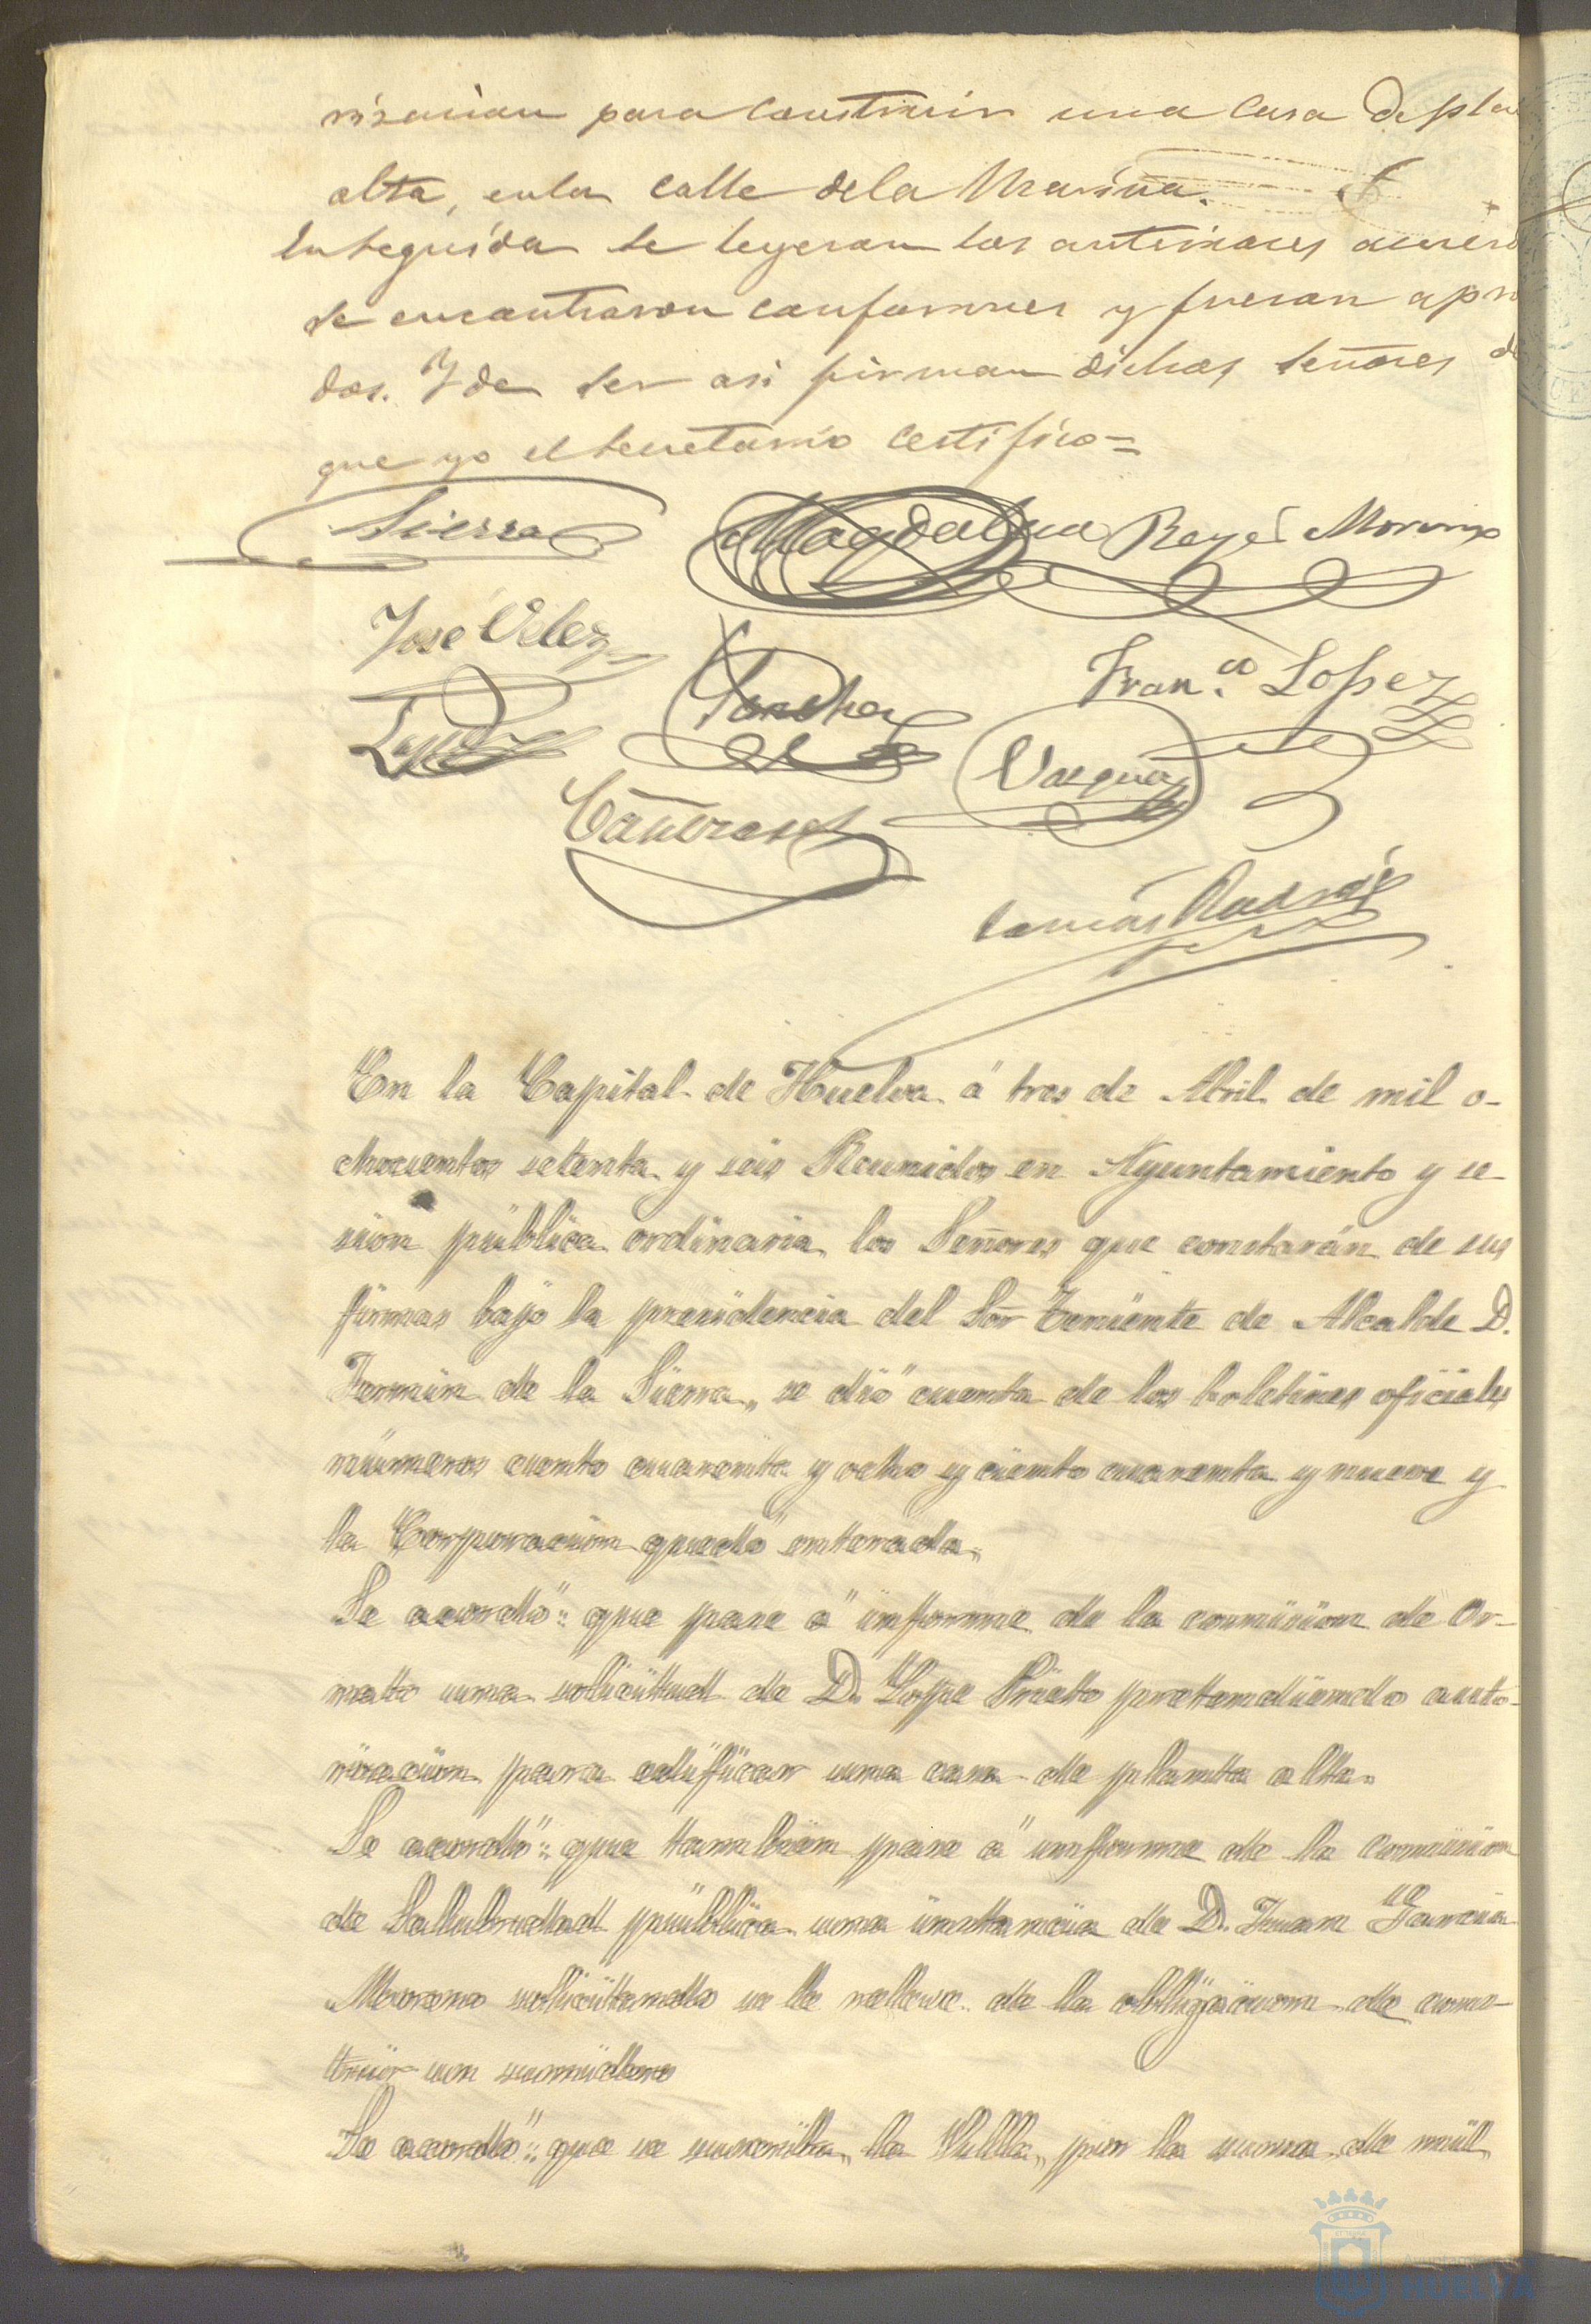 risacion para construir una casa de plan
alta, en la calle de la Marina.
Enseguida se leyeron los anteriores acuer
se encontraron conformes y fueron apro
dos. Y de ser asi firman dichos Señores de
que yo el Secretario certifico=
Sierra Magdalena Reyes Moreno
José Velez
Sanchez Franco. Lopez
Lopez Vazquez
Cañeras
Tomás
En la Capital de Huelva á tres de Abril de mil o-
chocientos setenta y seis Reunidos en Ayuntamiento y se-
sion pública ordinaria los Señores que constarán de sus
firmas bajo la presidencia del Sor Teniente de Alcalde D.
Fermin de la Sierra, se dió cuenta de los boletines oficiales
números ciento cuarenta y ocho y ciento cuarenta y nueve y
la Corporacion quedó enterada.
Se acordó: que pase á informe de la comision de Or-
nato una solicitud de D. Lope Prieto pretendiendo auto-
rizacion para edificar una casa de planta alta.
Se acordó: que tambien pase á informe de la Comision
de Salubridad pública una instancia de D. Juan Garcia
Moreno solicitando se le releve de la obligacion de cons-
truir un sumidero
Se acordó: que se suscriba, la Villa, por la suma de mil,
HUELVA